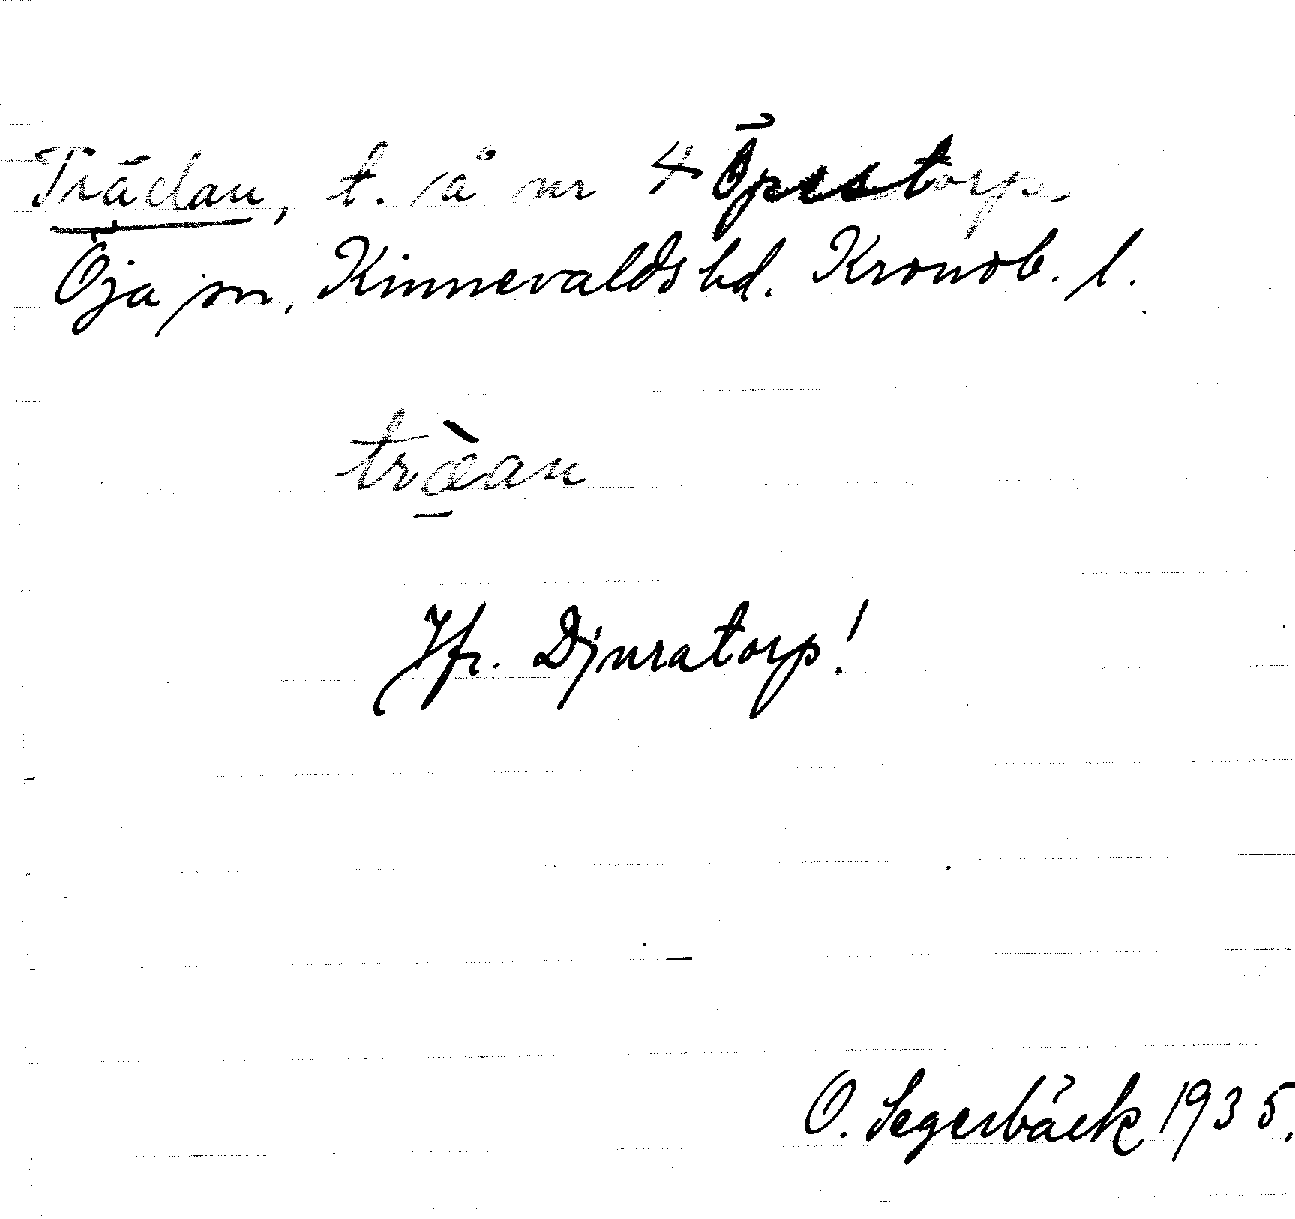 Trädan, t. på nr 4 Öpestorp.
Öja sn, Kinnevalds hd. Kronob. l.
træ̀an
Jfr. Djuratorp!
O. Segerbäck 1935.